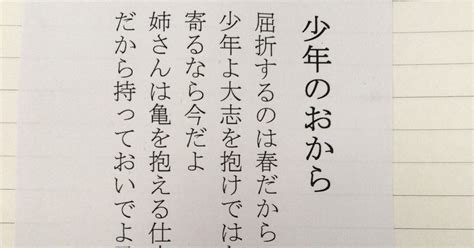 少年のおから
屈折するのは春だから
少年よ大志を抱けでは
寄るなら今だよ
姉さんは亀を抱える仕
だから持っておいでよ